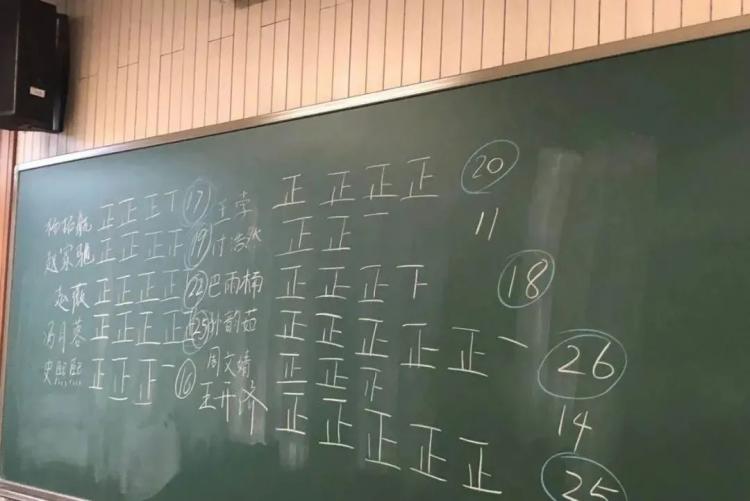 正正正丅 17 王李 正正正正 20
赵家驰 正正正正 19 付浩然 正正一 11
赵薇 正正正正 22 巴雨楠 正正正下 18
冯月蓉 正正正正 25 孙韵茹 正正正正正一 26
史熙熙 正正正一 16 周文靖 正正 14
王开济 正正正正正 25